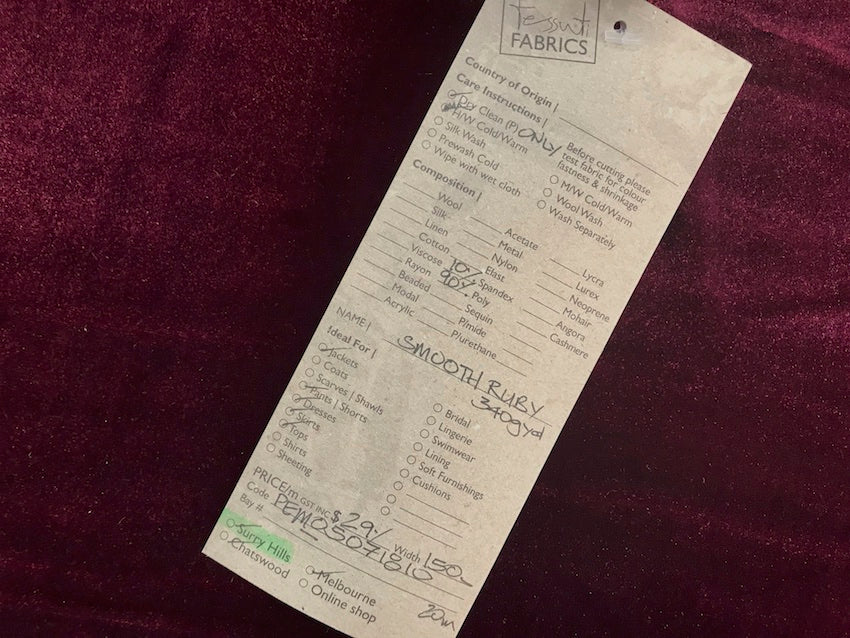 Tessuti
FABRICS
Country of Origin |
Care Instructions |
Dry Clean (P) ONLY
H/W Cold/Warm
Silk Wash
Prewash Cold
Wipe with wet cloth
Before cutting please
test fabric for colour
fastness & shrinkage
M/W Cold/Warm
Wool Wash
Wash Separately
Composition |
Wool
Silk
Linen
Cotton
Viscose
Rayon
Beaded
Modal
Acrylic
Acetate
Metal
Nylon
Elast
10% Spandex
90% Poly
Sequin
P/mide
P/urethane
Lycra
Lurex
Neoprene
Mohair
Angora
Cashmere
NAME | SMOOTH RUBY
340gyd
Ideal For |
Jackets
Coats
Scarves | Shawls
Pants | Shorts
Dresses
Skirts
Tops
Shirts
Sheeting
Bridal
Lingerie
Swimwear
Lining
Soft Furnishings
Cushions
PRICE/m GST INC $29.- Width 150-
Code PEM05071810
Bay #
20m
Surry Hills
Chatswood
Melbourne
Online shop